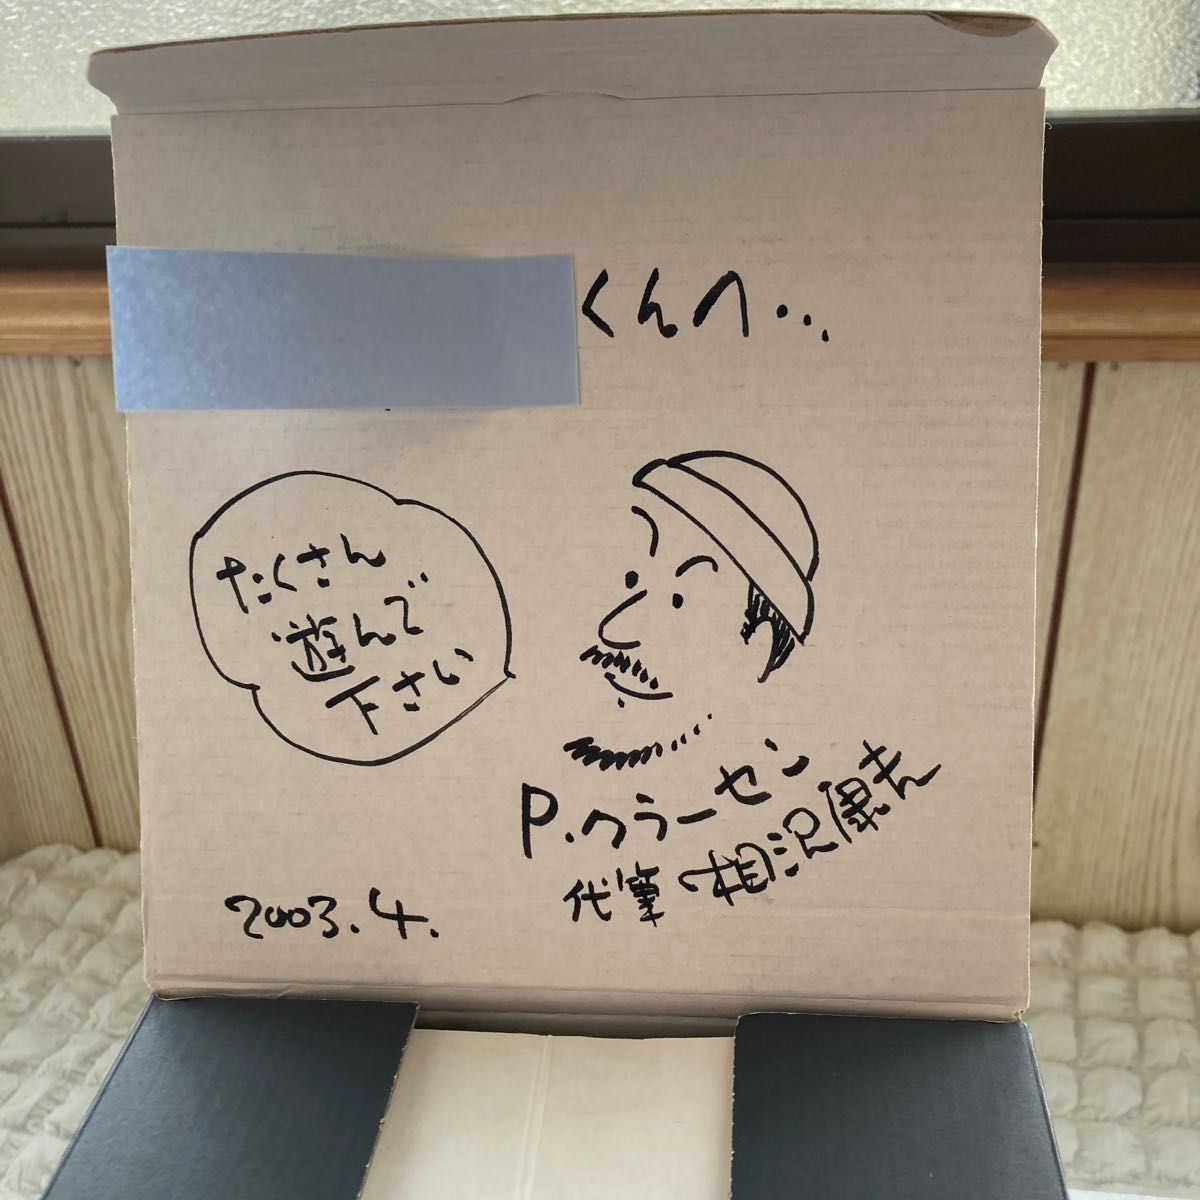 くんへ…
たくさん
遊んで
下さい
P.クラーセン
代筆 相沢康夫
2003.4.